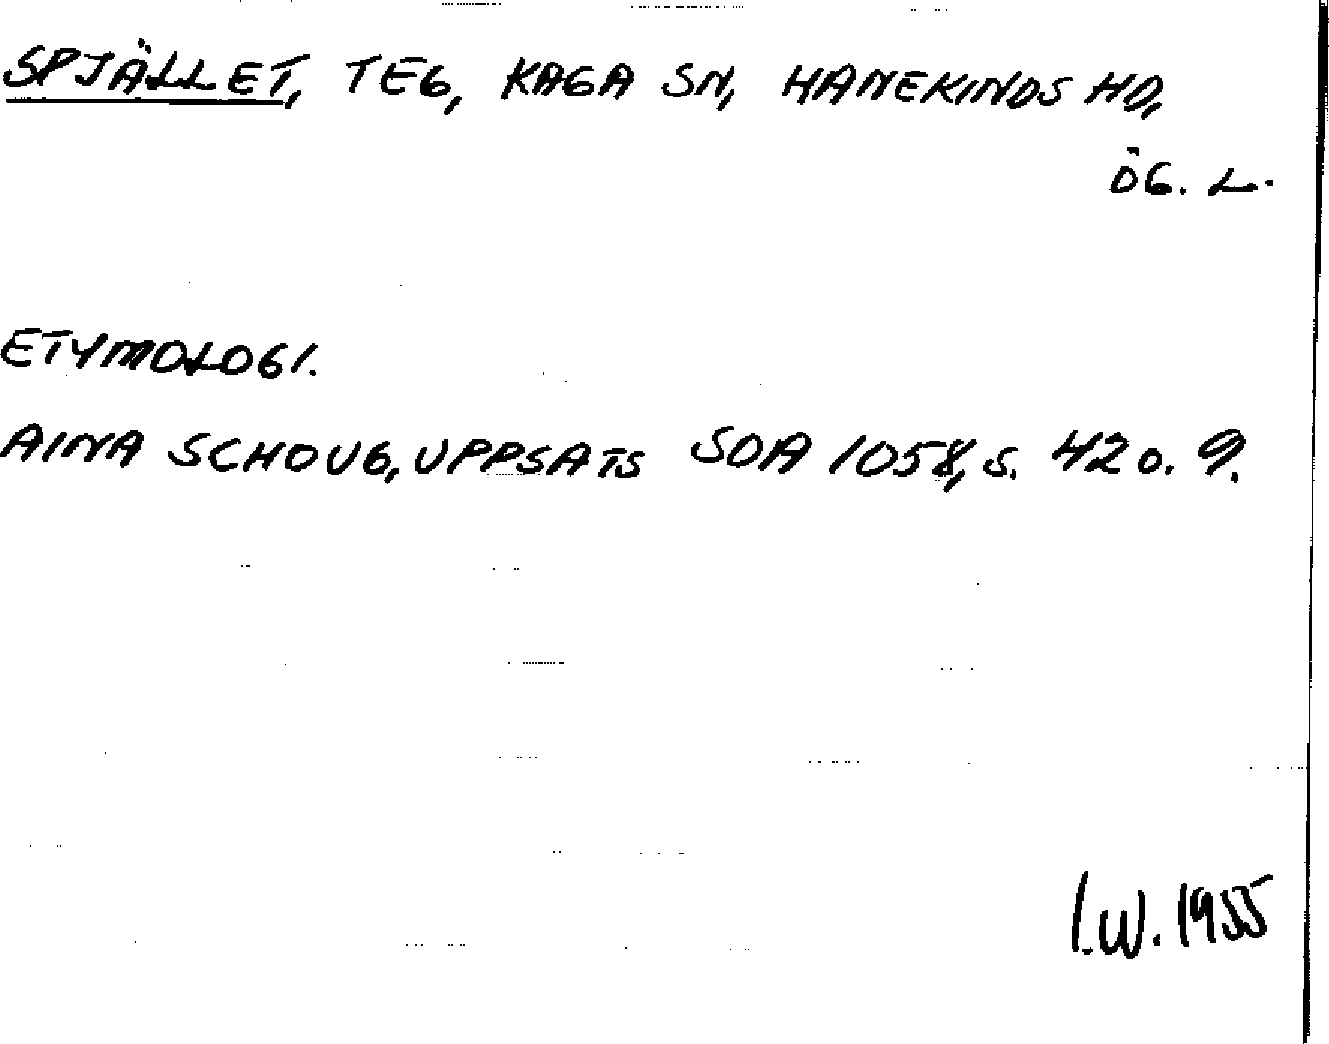 SPJÄLLET, TEG, KAGA SN, HANEKINDS HD,
ÖG. L.
ETYMOLOGI.
AINA SCHOUG, UPPSATS SOA 1058, S. 42 o. 9.
I.W. 1955